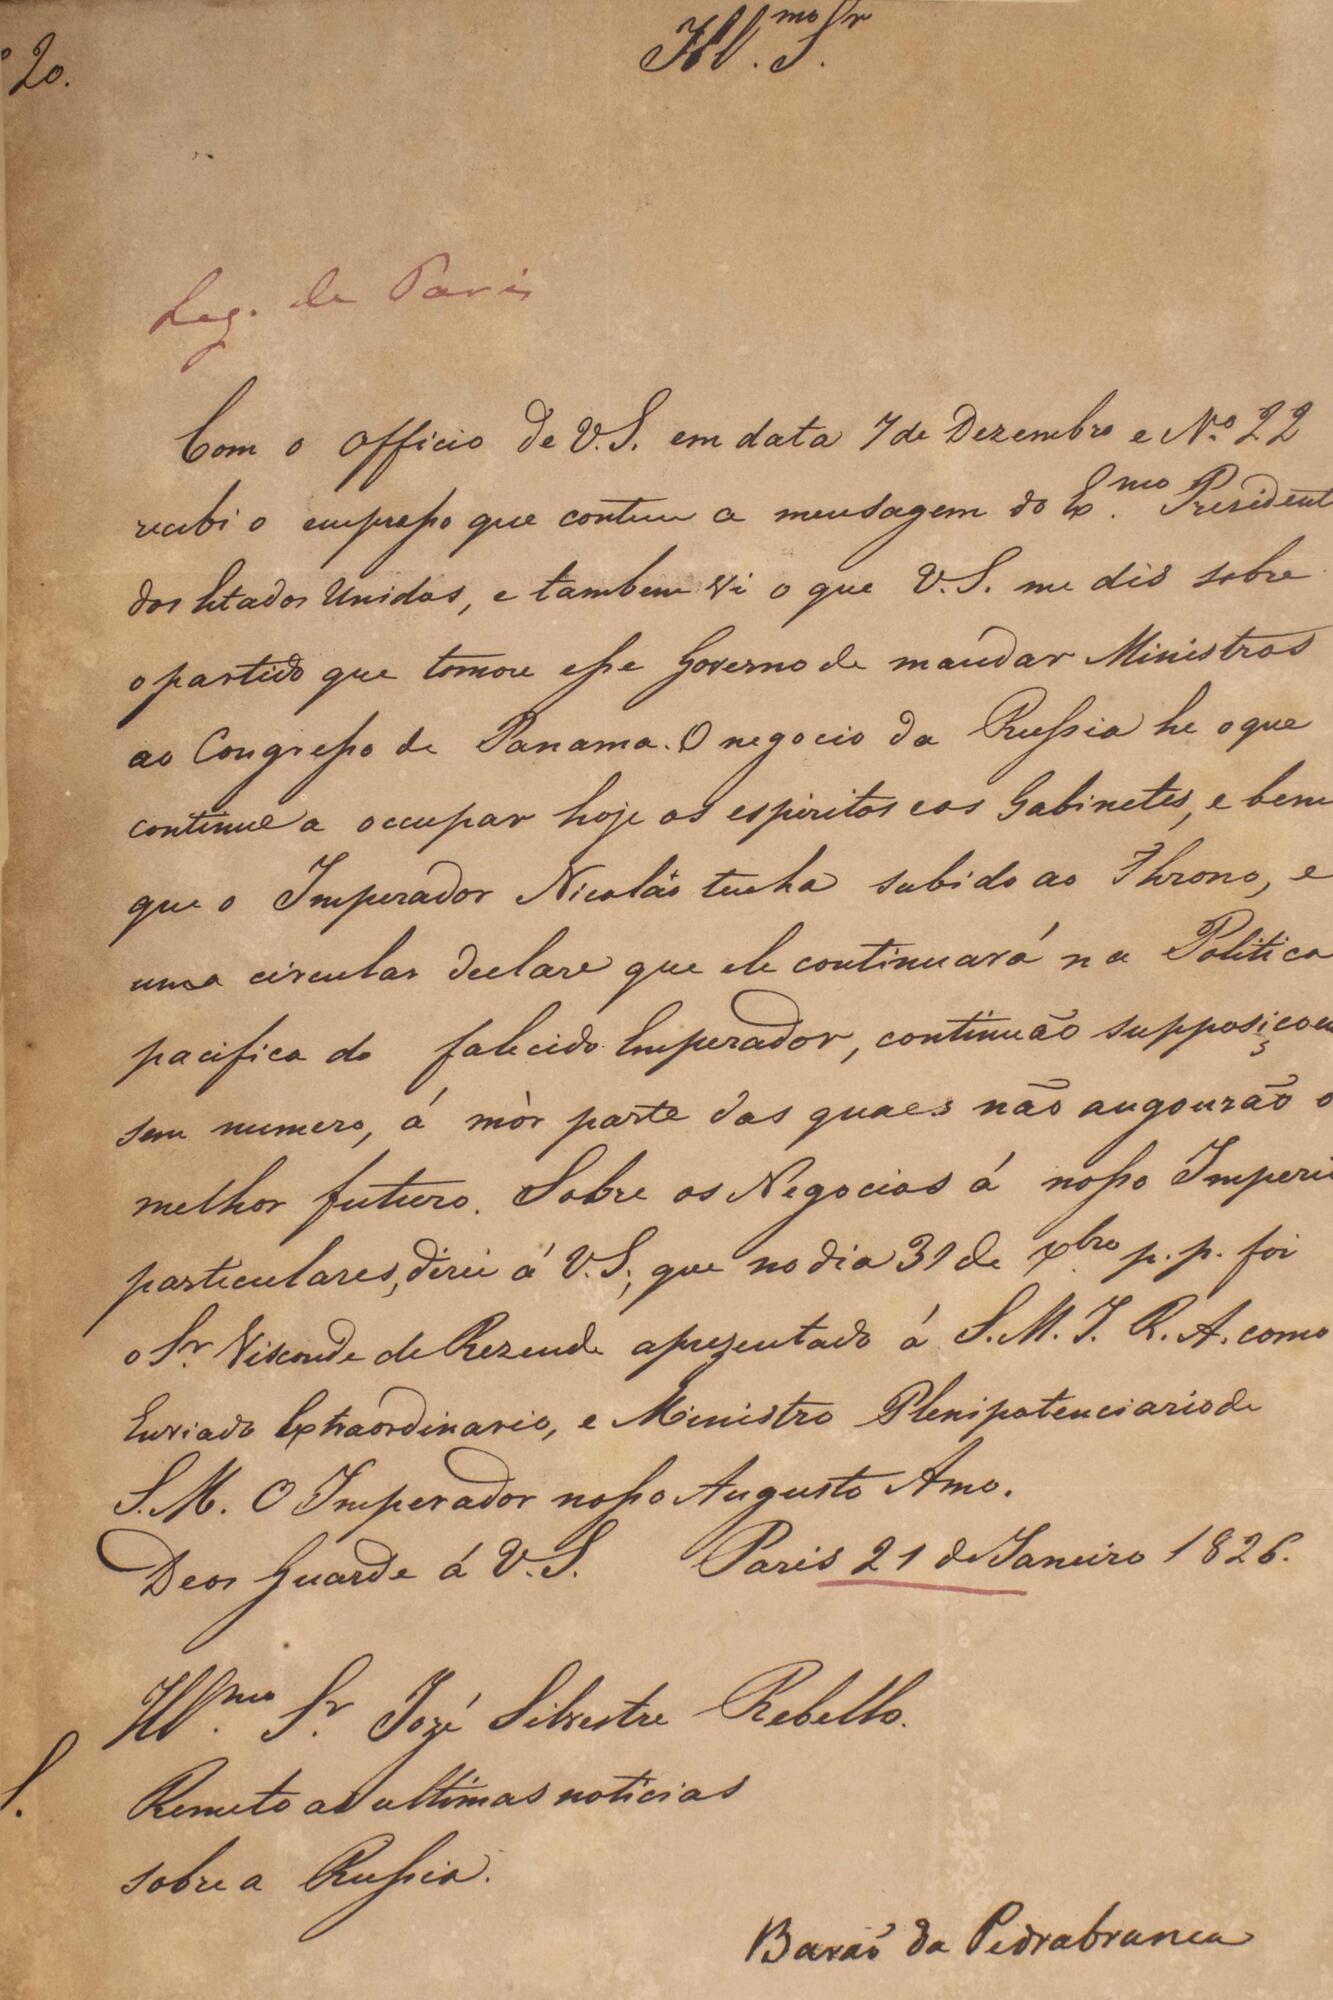 º 20.
Ill.mo Sr
Leg. de Paris
Com o officio de V.S. em data 7 de Dezembro e N.º 22
recebi o empresso que contem a mensagem do Ex.mo President
dos Estados Unidos, e tambem vi o que V.S. me dis sobre
o partido que tomou esse Governo de mandar Ministros
ao Congresso de Panama. O negocio da Russia he o que
continue a occupar hoje os espiritos e os Gabinetes, e bem
que o Imperador Nicoláo tenha subido ao Throno, e
uma circular declare que ele continuará na Politica
pacifica do falecido Emperador, continuão supposiçoen
sem numero, á mòr parte das quaes não augourão o
melhor futuro. Sobre os Negocios á nosso Imperi
particulares, direi á V.S., que no dia 31 de Xbro p.p. foi
o Sr. Visconde de Rezende aprezentado á S.M.I.R.A. como
Enviado Extraordinario, e Ministro Plenipotenciario de
S.M. O Imperador nosso Augusto Amo.
Deos Guarde á V.S. Paris 21 de Janeiro 1826.
Ill.mo Sr. Jozé Silvestre Rebello.
S. Remeto as ultimas noticias
sobre a Russia.
Barão da Pedrabranca